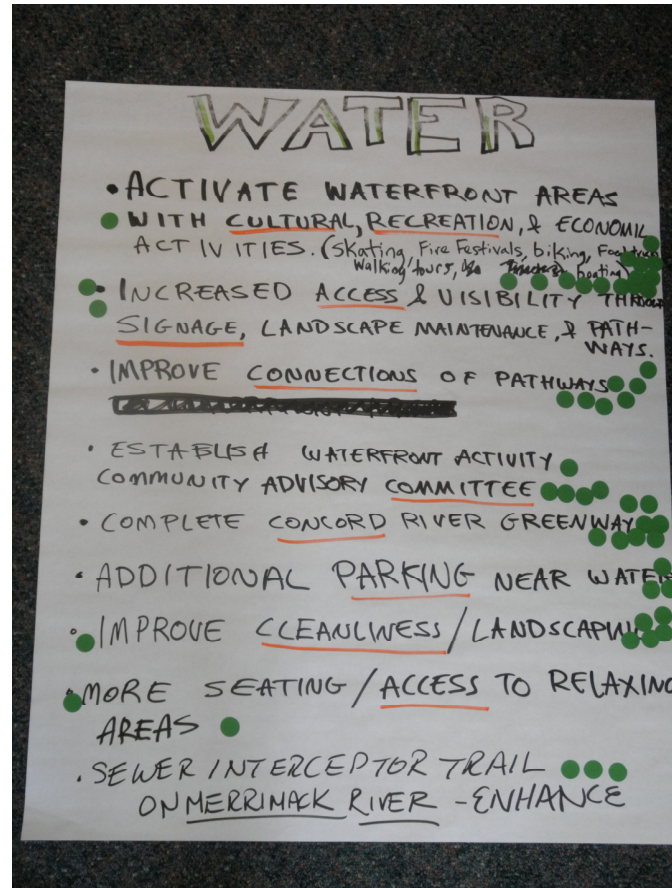 WATER
• ACTIVATE WATERFRONT AREAS
WITH CULTURAL, RECREATION, & ECONOMIC
ACTIVITIES. (Skating, Fire Festivals, biking, Food
Walking tours, boating)
• INCREASED ACCESS & VISIBILITY THROUGH
SIGNAGE, LANDSCAPE MAINTENANCE, & PATH-
WAYS.
• IMPROVE CONNECTIONS OF PATHWAYS
• ESTABLISH WATERFRONT ACTIVITY
COMMUNITY ADVISORY COMMITTEE
• COMPLETE CONCORD RIVER GREENWAY
• ADDITIONAL PARKING NEAR WATER
• IMPROVE CLEANLINESS / LANDSCAPING
• MORE SEATING / ACCESS TO RELAXING
AREAS
• SEWER INTERCEPTOR TRAIL
ON MERRIMACK RIVER - ENHANCE